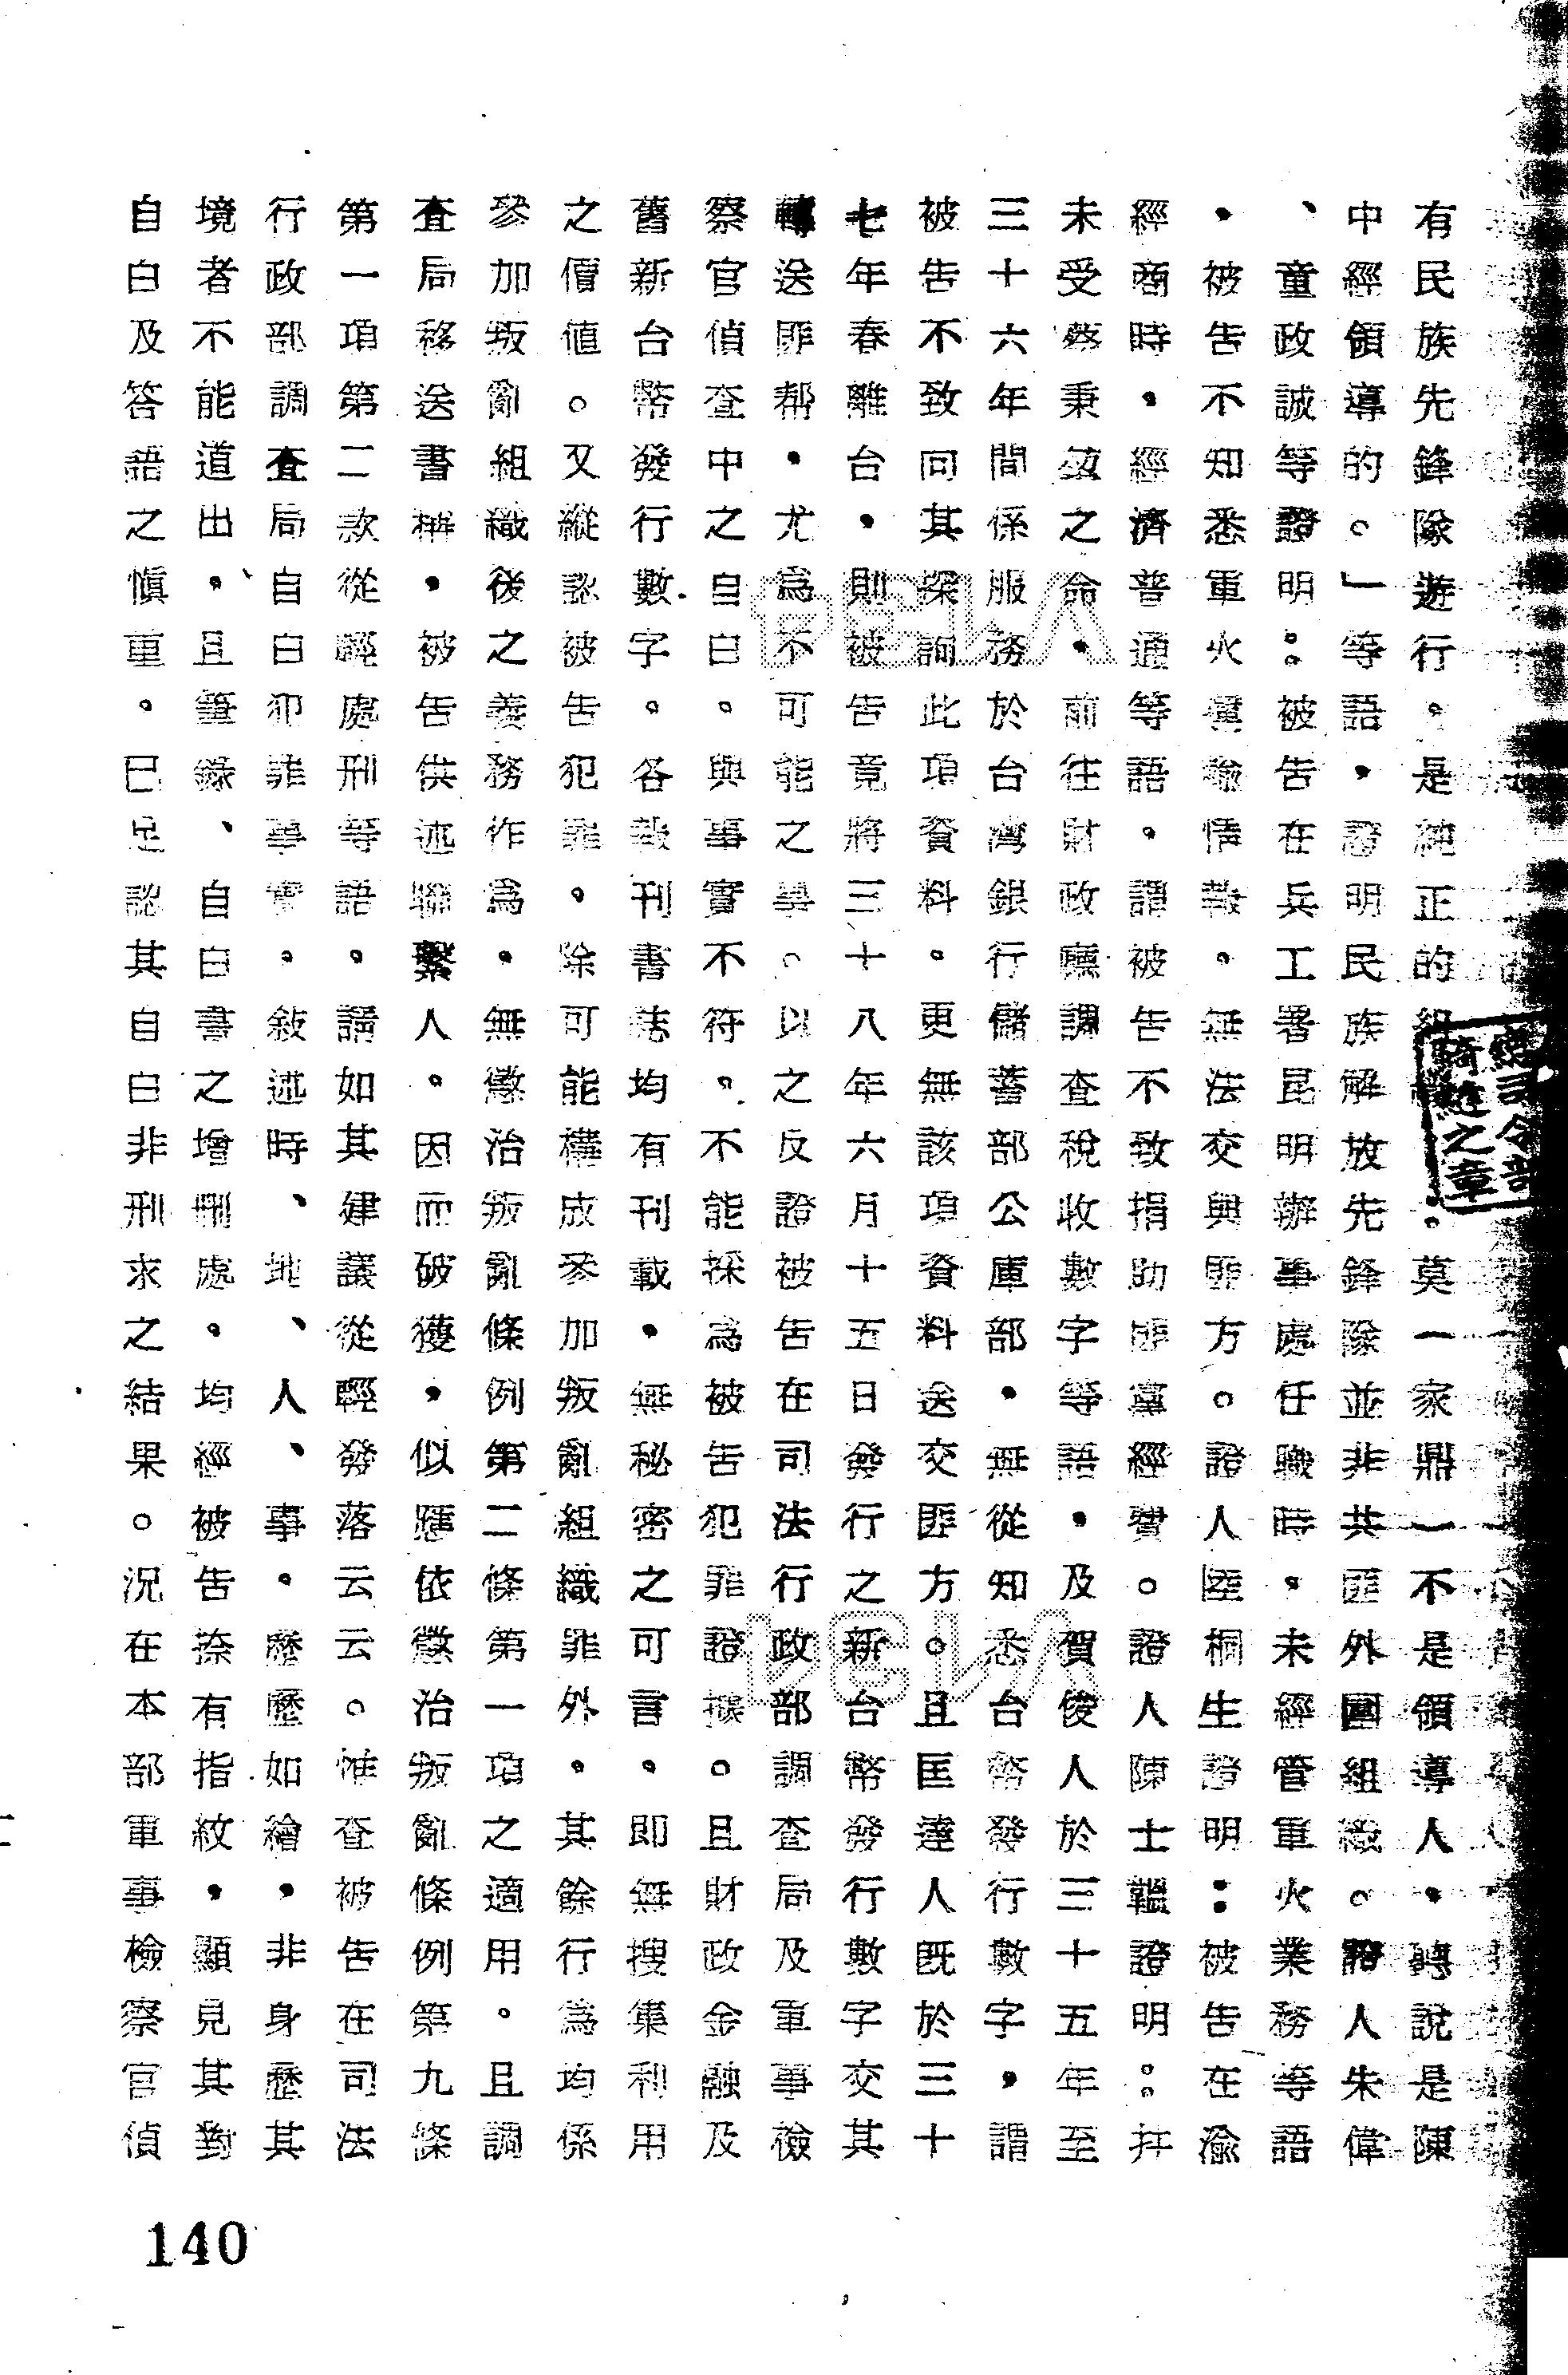 有民族先鋒隊遊行。是純正的組織。莫一家鼎一不是領導人，轉說是陳
中經領導的。」等語，證明民族解放先鋒隊並非共匪外圍組織。證人朱偉
、童政誠等證明：被告在兵工署昆明辦事處任職時，未經管軍火業務等語
，被告不知悉軍火彈藥情報。無法交與匪方。證人陸桐生證明：被告在渝
經商時，經濟普通等語，謂被告不致捐助匪黨經費。證人陳士韞證明：并
未受蔡秉敬之命，前往財政廳調查稅收數字等語，及賀俊人於三十五年至
三十六年間係服務於台灣銀行儲蓄部公庫部，無從知悉台幣發行數字，謂
被告不致向其探詢此項資料。更無該項資料送交匪方。且匡達人既於三十
七年春離台，則被告竟將三十八年六月十五日發行之新台幣發行數字交其
轉送匪幫，尤為不可能之事。以之反證被告在司法行政部調查局及軍事檢
察官偵查中之自白。與事實不符。不能採為被告犯罪證據。且財政金融及
舊新台幣發行數字。各報刊書誌均有刊載，無秘密之可言，即無搜集利用
之價值。又縱認被告犯罪，除可能構成參加叛亂組織罪外，其餘行為均係
參加叛亂組織後之義務作為，無懲治叛亂條例第二條第一項之適用。且調
查局移送書稱，被告供述聯繫人。因而破獲，似應依懲治叛亂條例第九條
第一項第二款從輕處刑等語。請如其建議從輕發落云云。惟查被告在司法
行政部調查局自白犯罪事實，敍述時、地、人、事，歷歷如繪，非身歷其
境者不能道出，且筆錄、自白書之增刪處，均經被告捺有指紋，顯見其對
自白及答語之慎重。已足認其自白非刑求之結果。況在本部軍事檢察官偵
之章
140